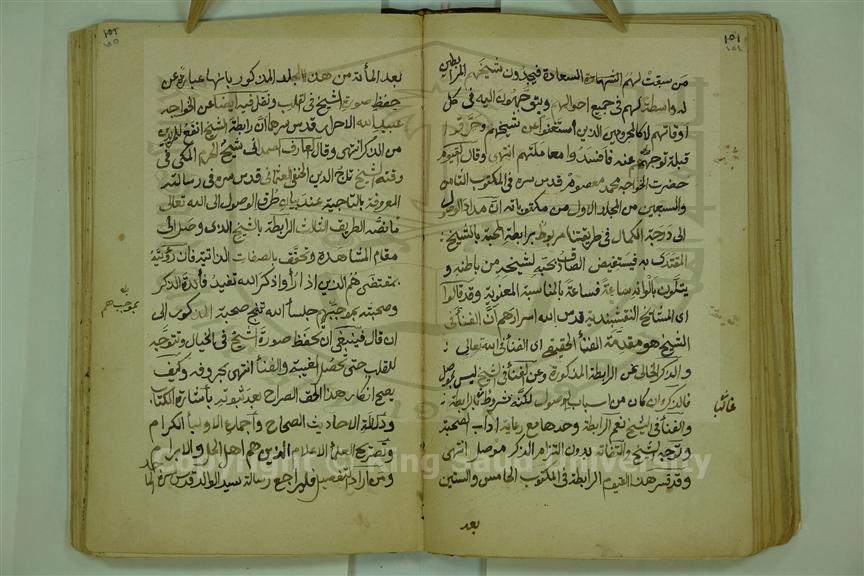 ١٥١
من سبقت لهم الشهادة السعادة فيجدون شيخهم المرابطين
له واسطة لهم في جميع احوالهم ويتوجهون اليه في كل
اوقاتهم لا كالمحرومين الذين استغنوا عن شيخهم وحرفوا
قبلة توجههم عنه فافسدوا معاملتهم انتهى وقال القيوم
حضرت الخواجه محمد معصوم قدس سره في المكتوب الثامن
والسبعين من المجلد الاول من مكتوباته ان مدار الوصول
الى درجة الكمال في طريقتنا مربوط برابطة المحبة بالشيخ
المقتدى به فيستفيض الصادق بمحبة لشيخه من باطنه و
يتلون بالوانه ساعة فساعة بالمناسبة المعنوية وقد قالوا
اى المشايخ النقشبندية قدس الله اسرارهم ان الفناء في
الشيخ هو مقدمة الفناء الحقيقي اى الفناء في الله تعالى
والذكر الخالي عن الرابطة المذكورة وعن الفناء في الشيخ ليس بموصل
غالبا
فالذكر وان كان من اسباب الوصول لكنه مشروط بالرابطة
والفناء في الشيخ نعم الرابطة وحدها مع رعاية اداب الصحبة
وتوجه الشيخ والتفاته بدون التزام الذكر موصل انتهى
وقد فسر هذا القيوم الرابطة في المكتوب الخامس والستين
بعد
١٥٢
بعد المائة من هذا الجلد المذكور بانها عبارة عن
حفظ صورة الشيخ في القلب ونقل فيه ايضا عن الخواجه
عبيد الله الاحرار قدس سرهما ان رابطة الشيخ انفع للمريدين
من الذكر انتهى وقال العارف الصمداني شيخ الحرم المكى في
وقته الشيخ تاج الدين الحنفي العثماني قدس سره في رسالته
المعروفة بالتاجية عند بيان طرق الوصول الى الله تعالى
ما نصه الطريق الثالث الرابطة بالشيخ الذى وصل الى
مقام المشاهدة وتحقق بالصفات الذاتية فان رؤيته
بمقتضى هم الذين اذا رأوا ذكر الله تفيد فائدة الذكر
وصحبته بموجبهم جلساء الله تنتج صحبة المذكور الى
بموجب هم
ان قال فينبغى ان تحفظ صورة الشيخ في الخيال وتتوجه
للقلب حتى يحصل الغيبة والفناء انتهى بحروفه وكيف
يصح انكار هذا الحق الصراح بعد ثبوته باشارة الكتاب
ودلالة الاحاديث الصحاح واجماع الاولياء الكرام
وتصريح العلماء الاعلام الذين هم اهل الحل والابرام
ومن اراد التفصيل فليراجع رسالة سيد الوالد قدس سره
Copyright © King Saud University